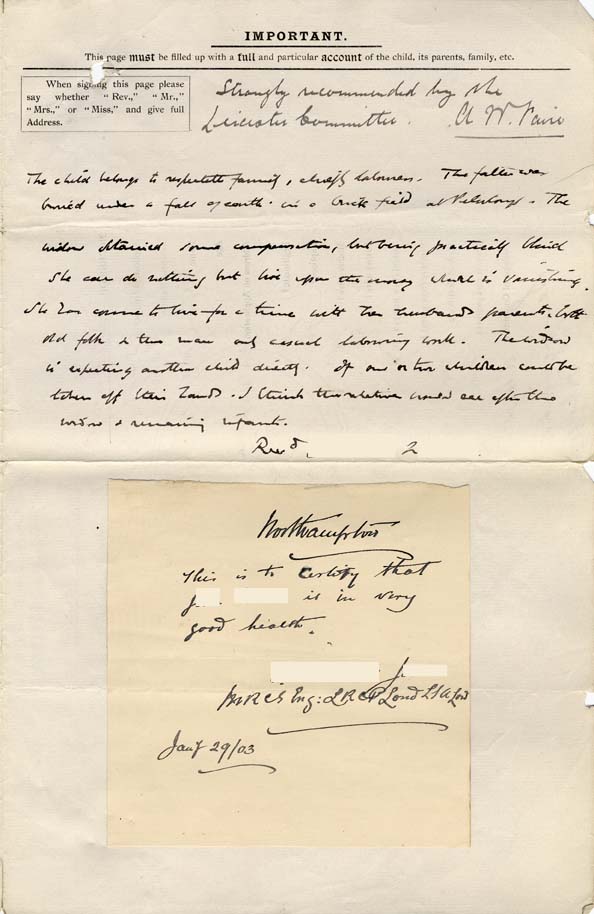 IMPORTANT.
This page must be filled up with a full and particular account of the child, its parents, family, etc.
When signing this page please
say whether "Rev.," "Mr.,"
"Mrs.," or "Miss," and give full
Address.
Strongly recommended by the
Leicester Committee. A. W.
The child belongs to respectable family, chiefly labourers. The father was
buried under a fall of earth in a brick field at . The
widow obtained some compensation, but being practically blind
she can do nothing but live upon the money which is vanishing.
She has come to live for a time with her husband's parents, both
old folk & the man only casual labouring work. The widow
is expecting another child directly. If one or two children could be
taken off their hands. I think the relatives would see after the
widow & remaining infants.
Rec'd. 2
Northampton
This is to certify that
J is in very
good health.
J
MRCS Eng: LRCP Lond LSA Lond
Jany 29/03